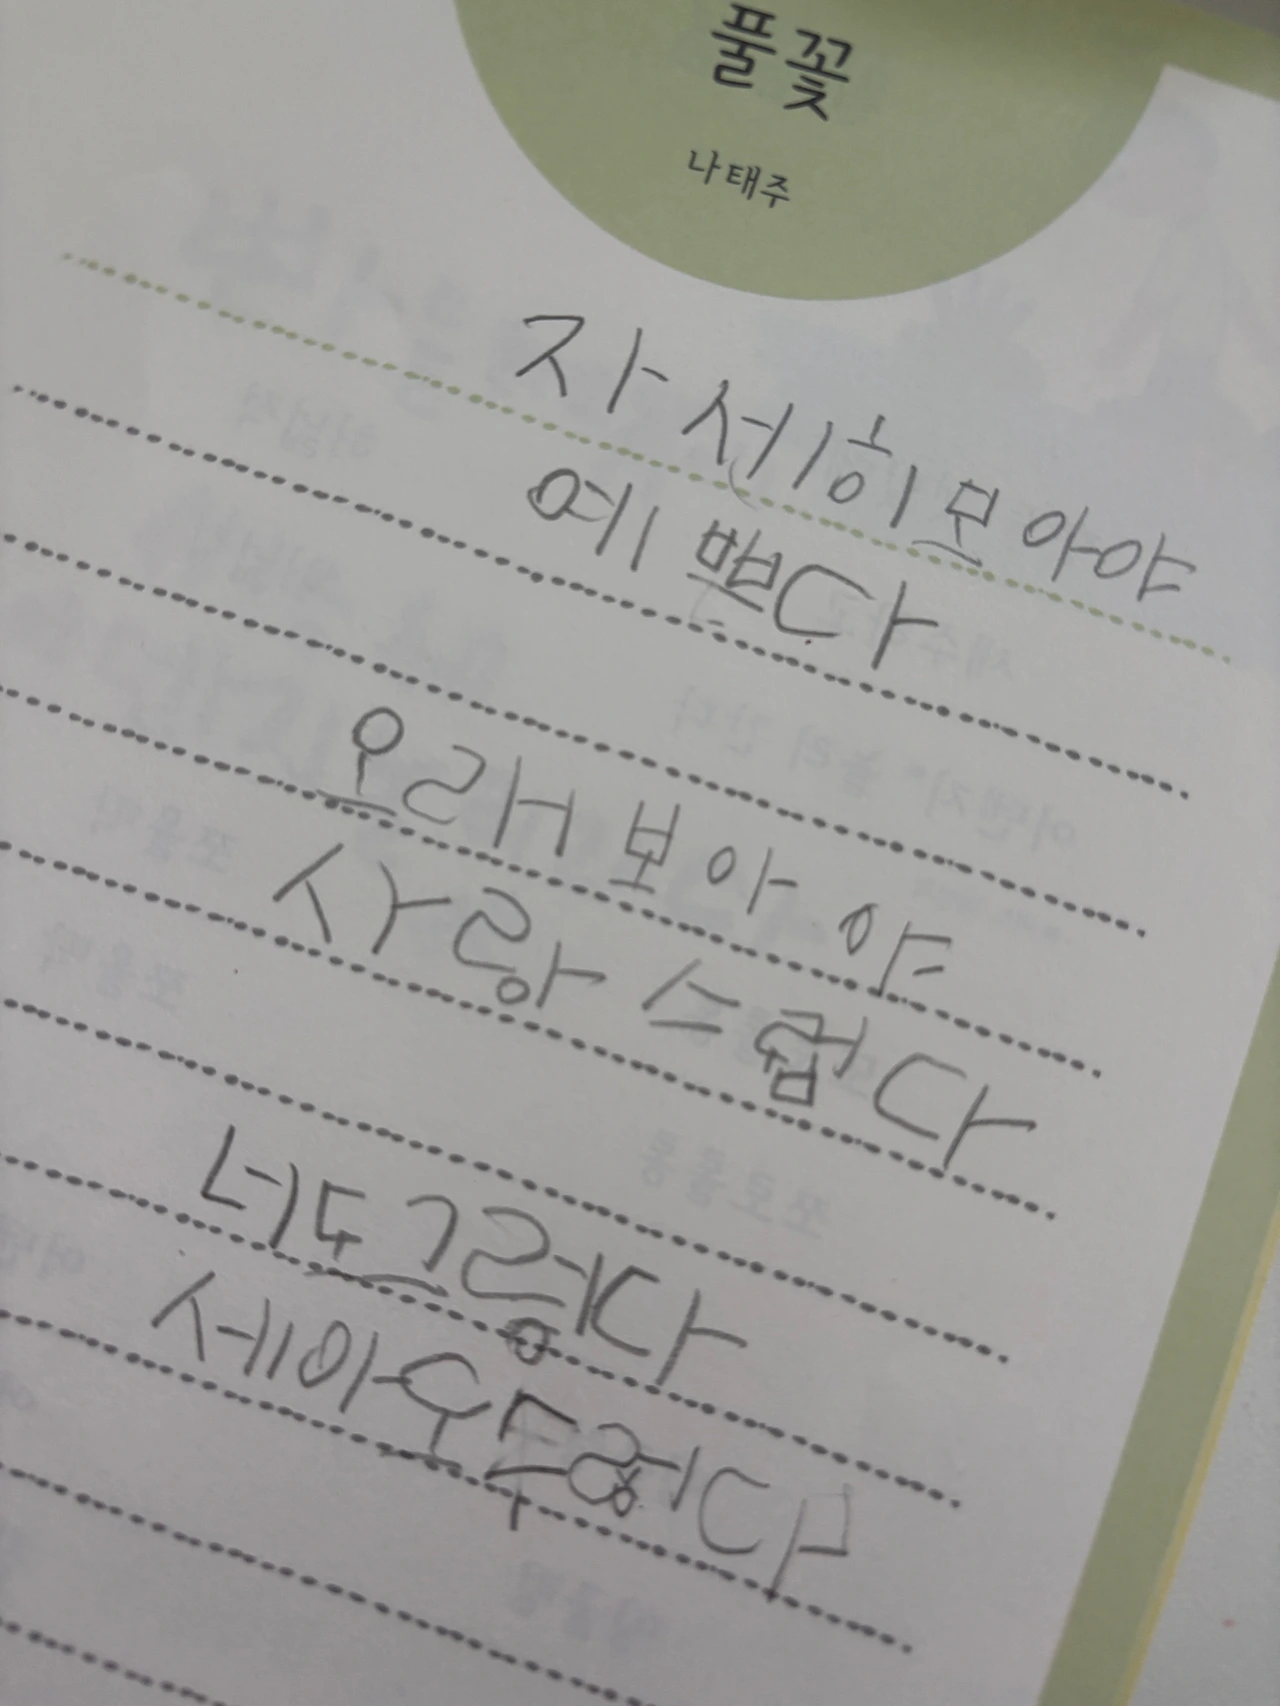 풀꽃
나태주
자세히보아야
예쁘다
오래보아야
사랑스럽다
너도그렇다